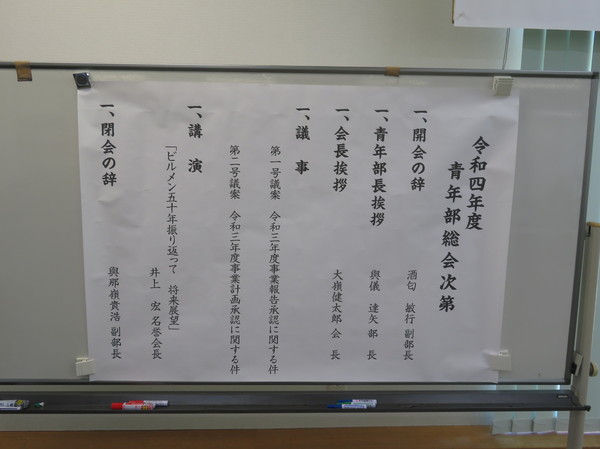 令和四年度
青年部総会次第
一、開会の辞 酒匂 敏行 副部長
一、青年部長挨拶 與儀 達矢 部 長
一、会長挨拶 大嶺健太郎 会 長
一、議 事
第一号議案 令和三年度事業報告承認に関する件
第二号議案 令和三年度事業計画承認に関する件
一、講 演
「ビルメン五十年振り返って 将来展望」
井上 宏 名誉会長
一、閉会の辞 與那嶺貴浩 副部長